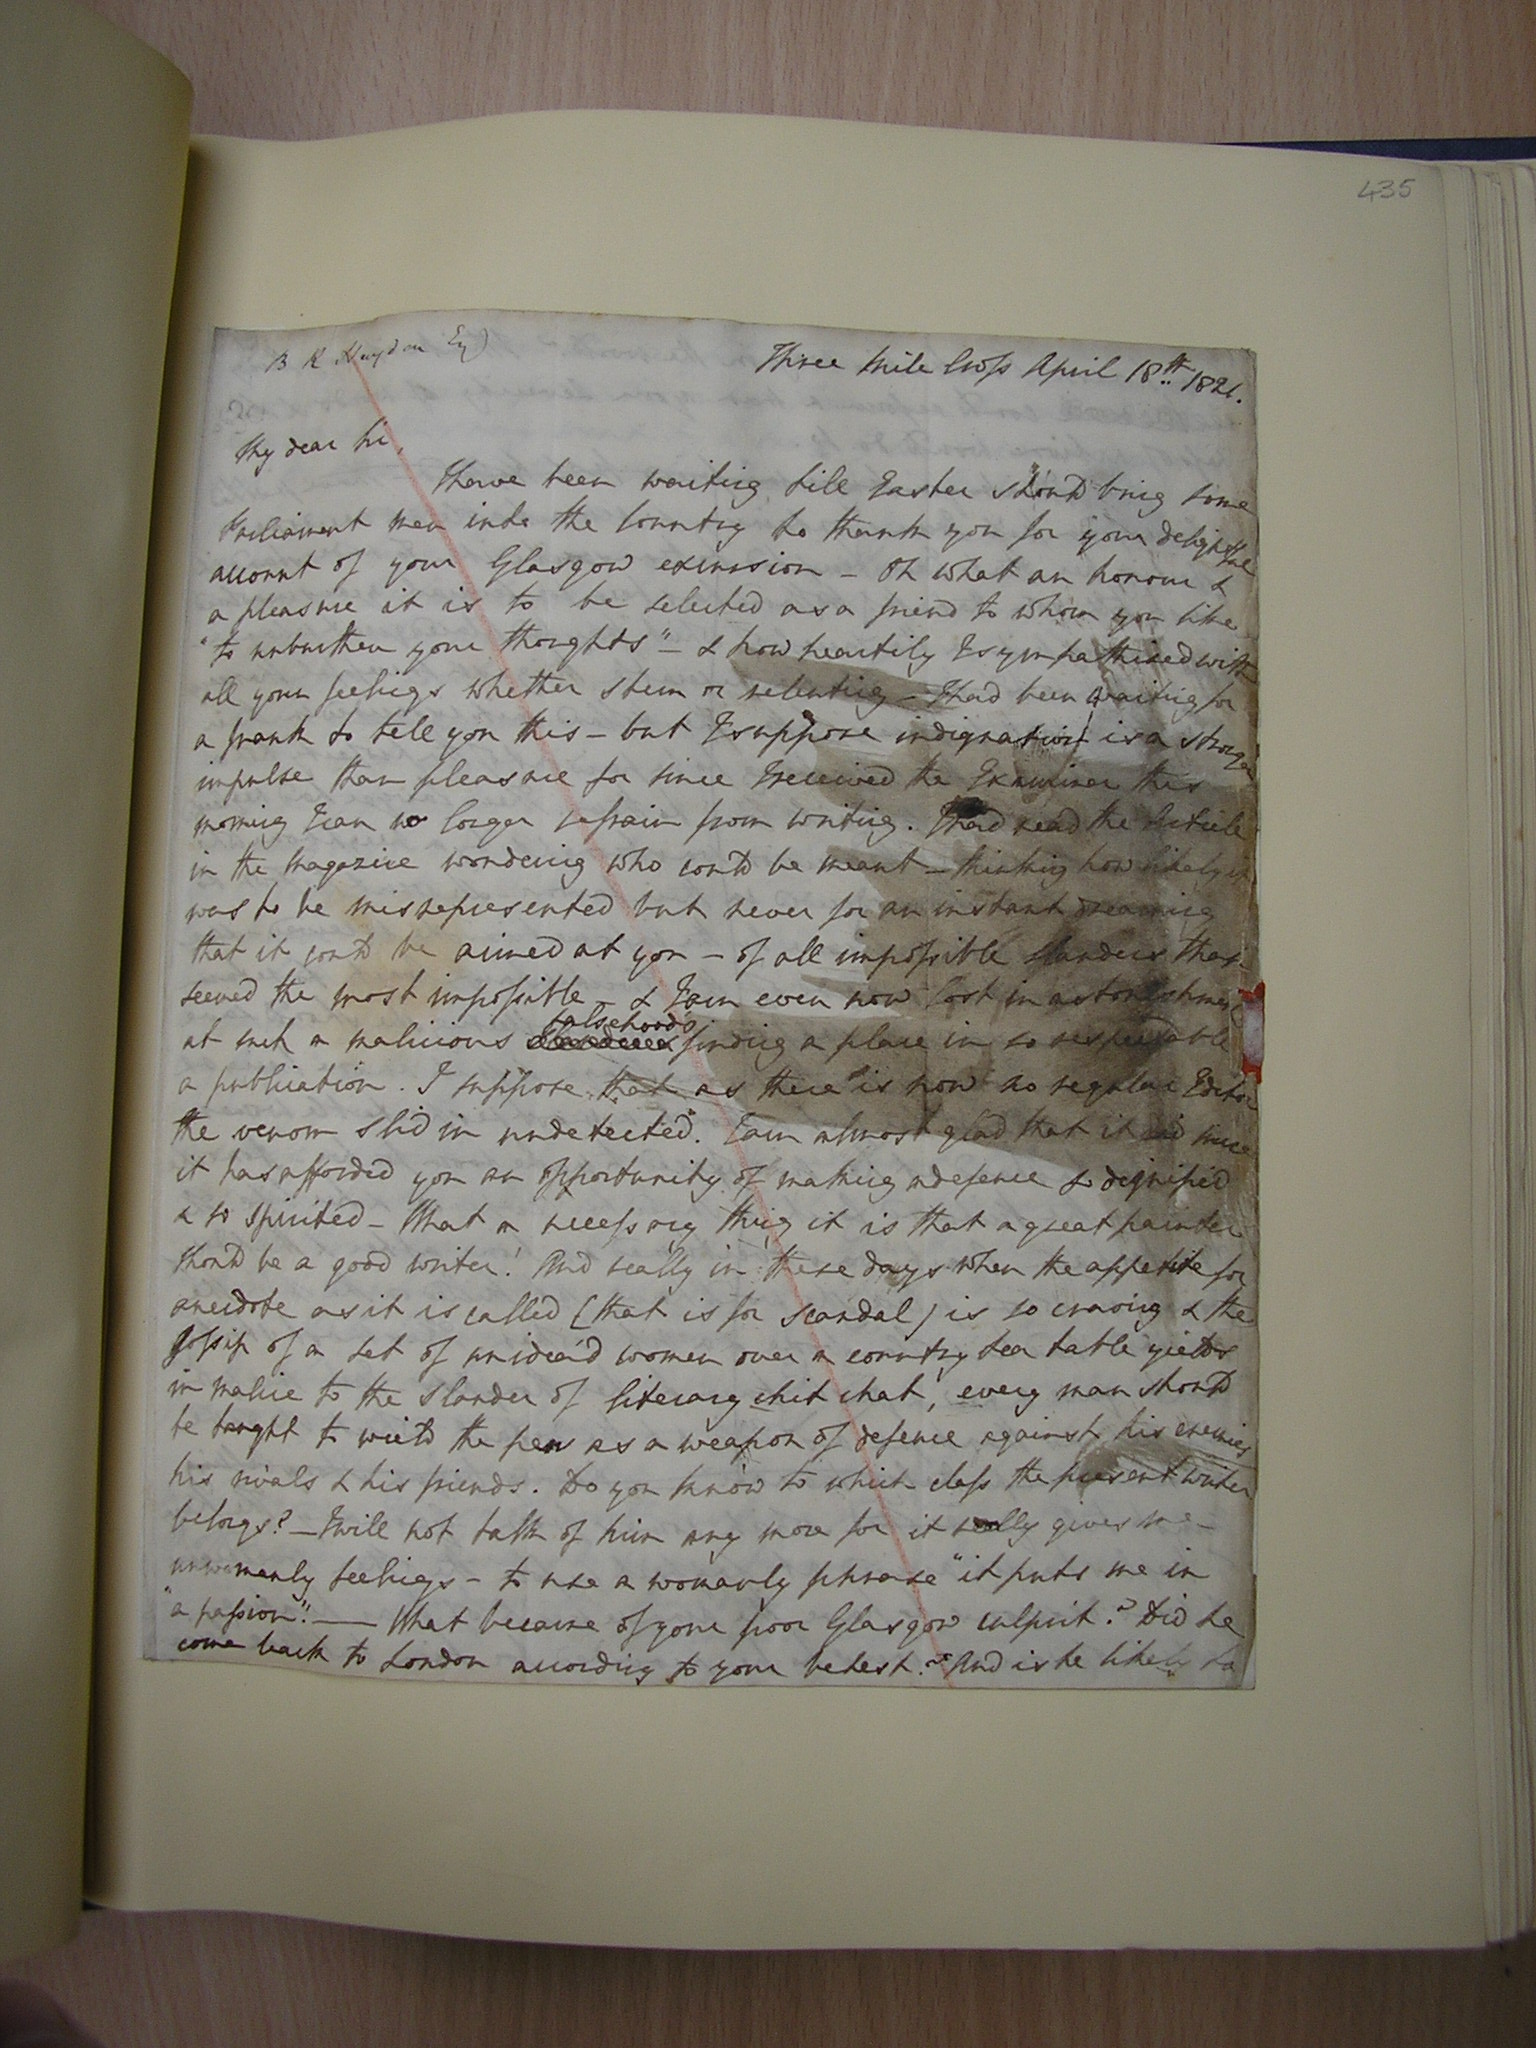 435
B R Haydon Esq
Three Mile Cross April 18th 1821.
My dear Sir,
I have been waiting till Easter should bring some
Parliament men into the Country to thank you for your delightful
account of your Glasgow excursion - Oh what an honour &
a pleasure it is to be selected as a friend to whom you like
"to unburthen your thoughts" - & how heartily I sympathised with
all your feelings whether stern or relenting - I had been waiting for
a frank to tell you this - but I suppose indignation is a stronger
impulse than pleasure for since I received the Examiner this
morning I can no longer refrain from writing. I had read the Article
in the Magazine wondering who could be meant - thinking how likely it
was to be misrepresented but never for an instant dreaming
that it could be aimed at you - of all impossible slanders that
seemed the most impossible - & I am even now lost in astonishment
at such a malicious falsehood finding a place in so respectable
a publication. I suppose that as there is now no regular Editor
the venom slid in undetected. I am almost glad that it did since
it has afforded you an opportunity of making a defence so dignified
& so spirited - What a necessary thing it is that a great painter
should be a good writer! And really in these days when the appetite for
anecdote as it is called (that is for scandal) is so craving & the
gossip of a set of unidea'd women over a country tea table yields
in malice to the slander of literary chit chat, every man should
be taught to wield the pen as a weapon of defence against his enemies
his rivals & his friends. Do you know to which class the present writer
belongs? - I will not talk of him any more for it really gives me -
unwomanly feelings - to use a womanly phrase "it puts me in
"a passion". — What became of your poor Glasgow culprit? Did he
come back to London according to your behest? And is he likely to